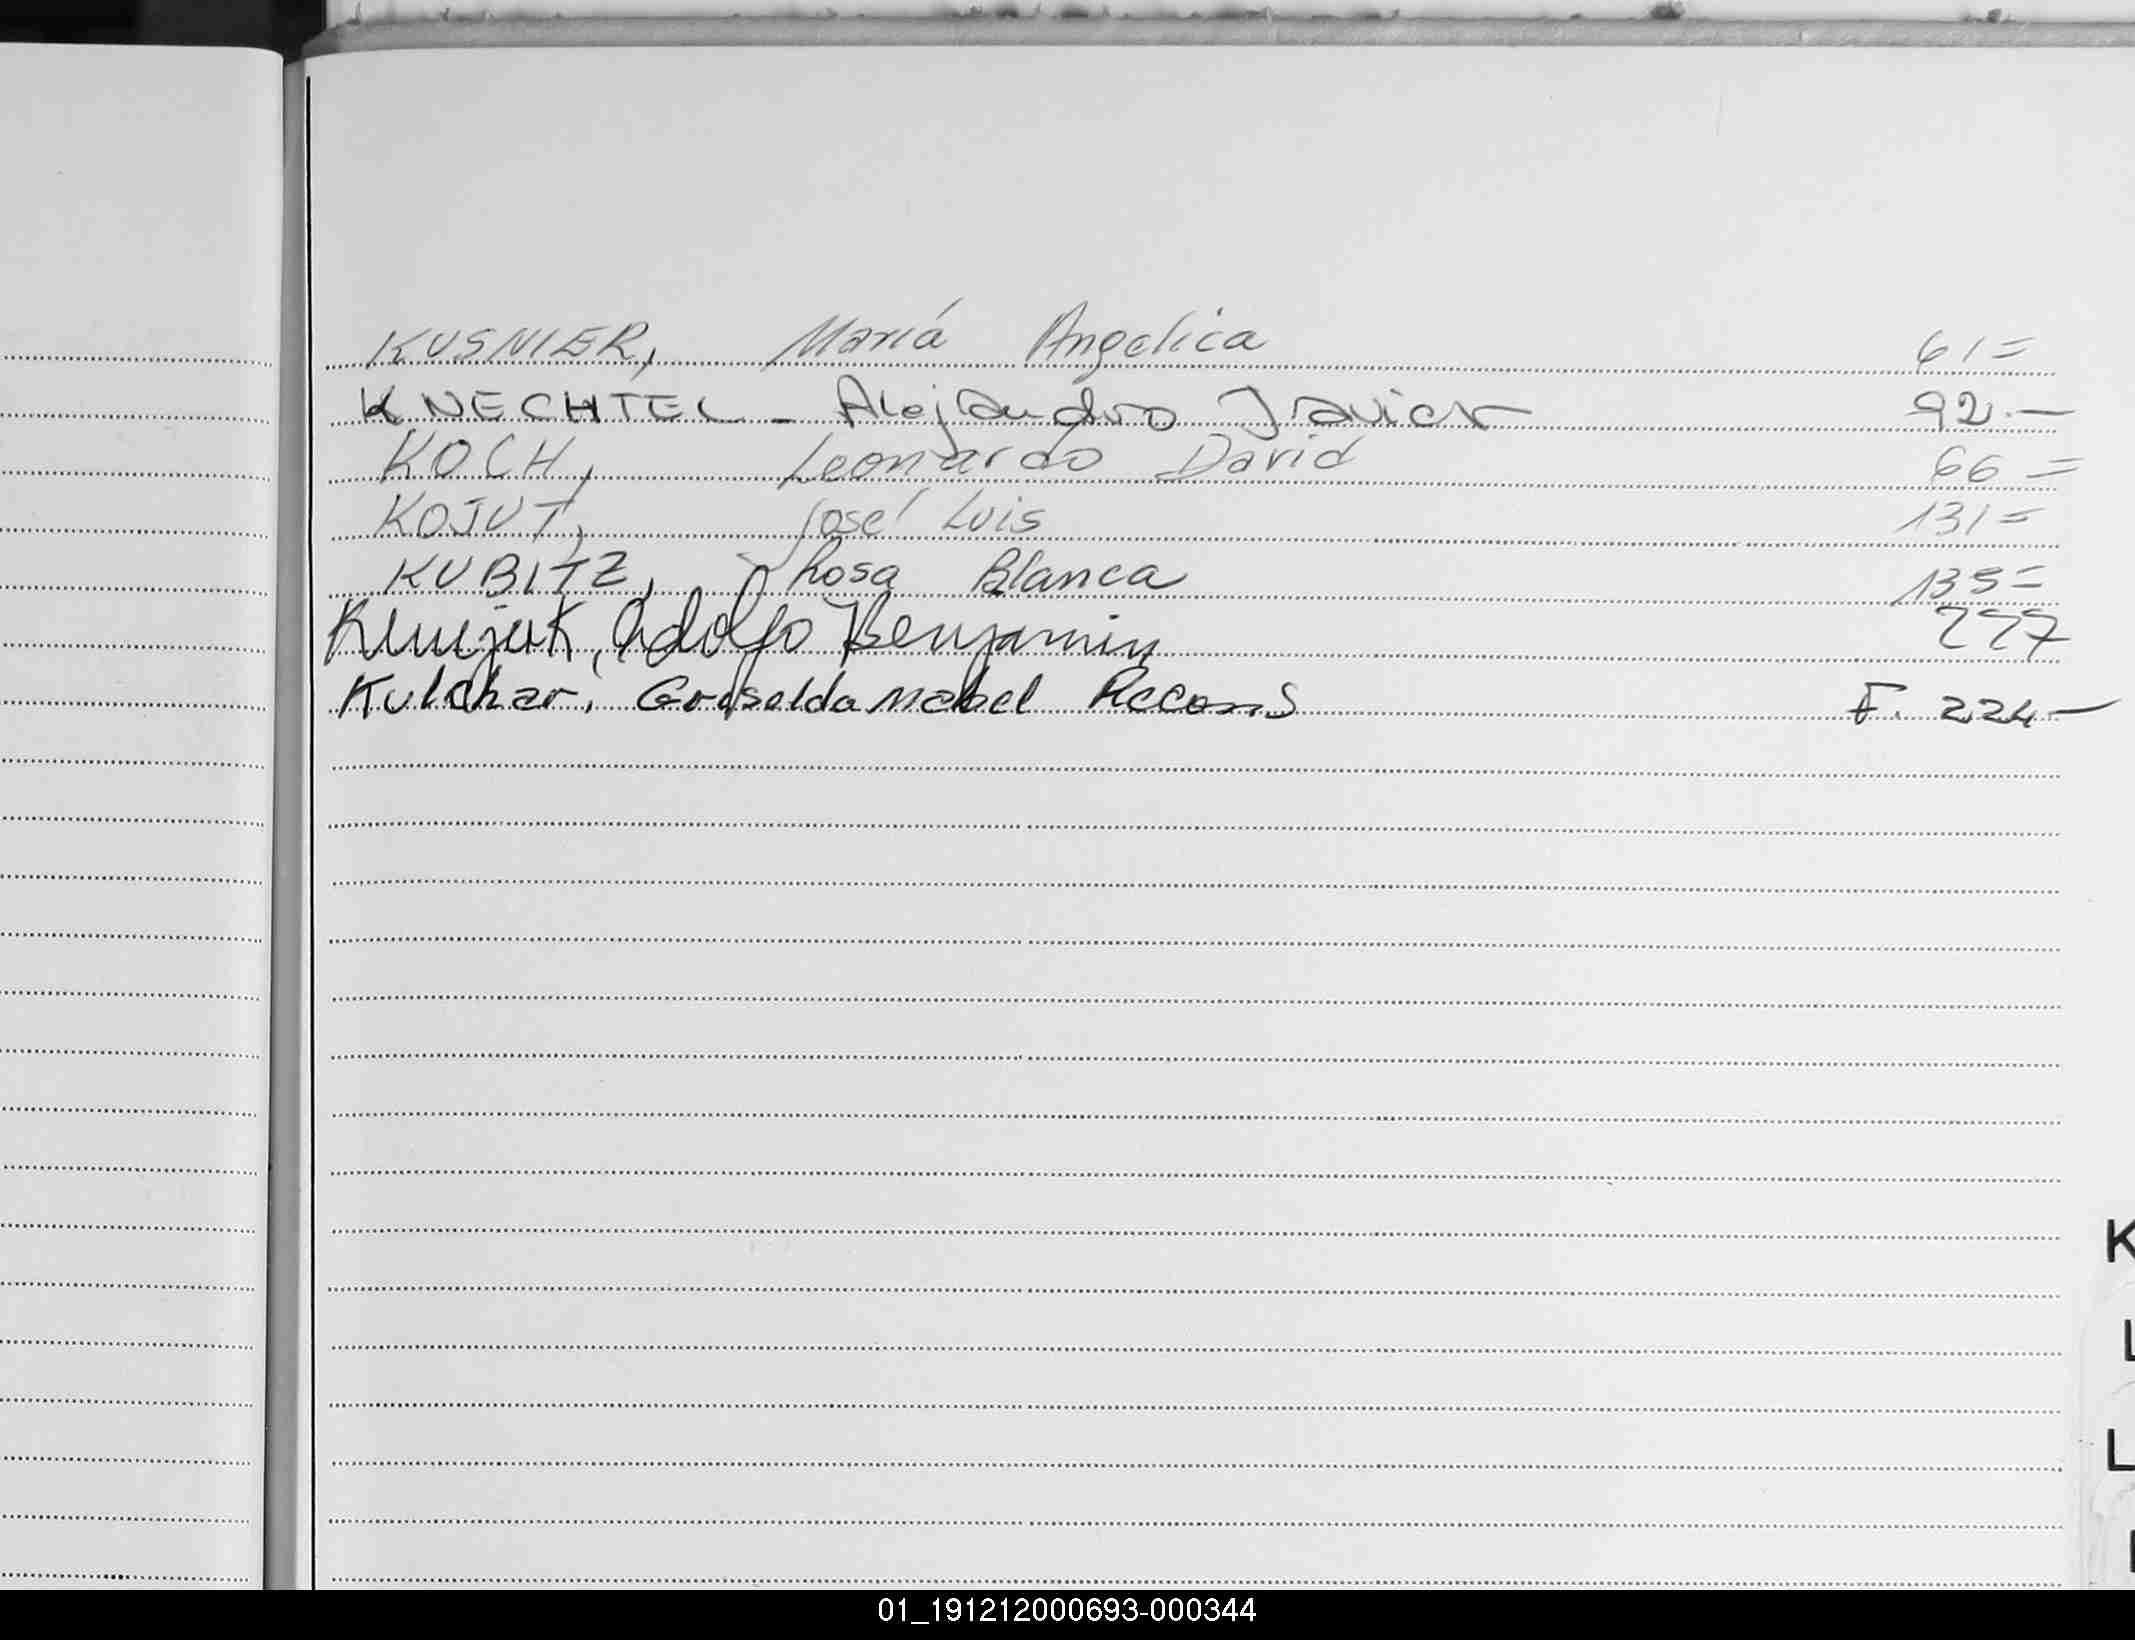 KUSNIER, María Angelica 61=
KNECHTEL - Alejandro Javier 92.-
KOCH, Leonardo David 66=
KOJUT, José Luis 131=
KUBITZ, Rosa Blanca 135=
Adolfo Benjamin
Kulchar, Griselda Mabel Recons F. 224-
K
L
L
01_191212000693-000344